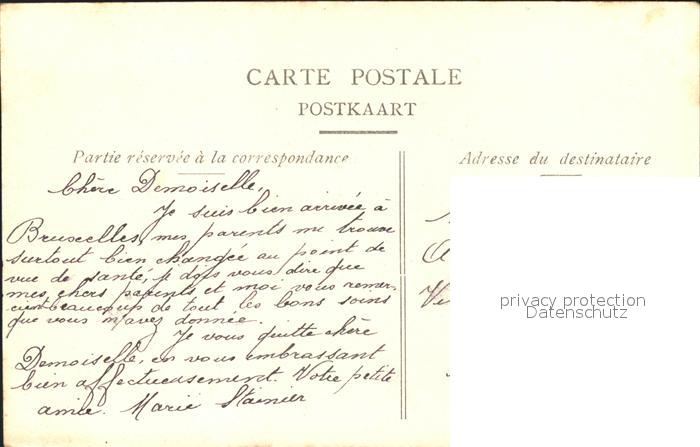 CARTE POSTALE
POSTKAART
Partie réservée à la correspondance
Adresse du destinataire
Chère Demoiselle,
Je suis bien arrivée à
Bruxelles, mes parents me trouve
surtout bien changée au point de
vue de santé, je dois vous dire que
mes chers parents et moi vous remer-
cient beaucoup de tout les bons soins
que vous m'avez donnée.
Je vous quitte chère
Demoiselle, en vous embrassant
bien affectueusement. Votre petite
amie. Marie Stainier
privacy protection
Datenschutz